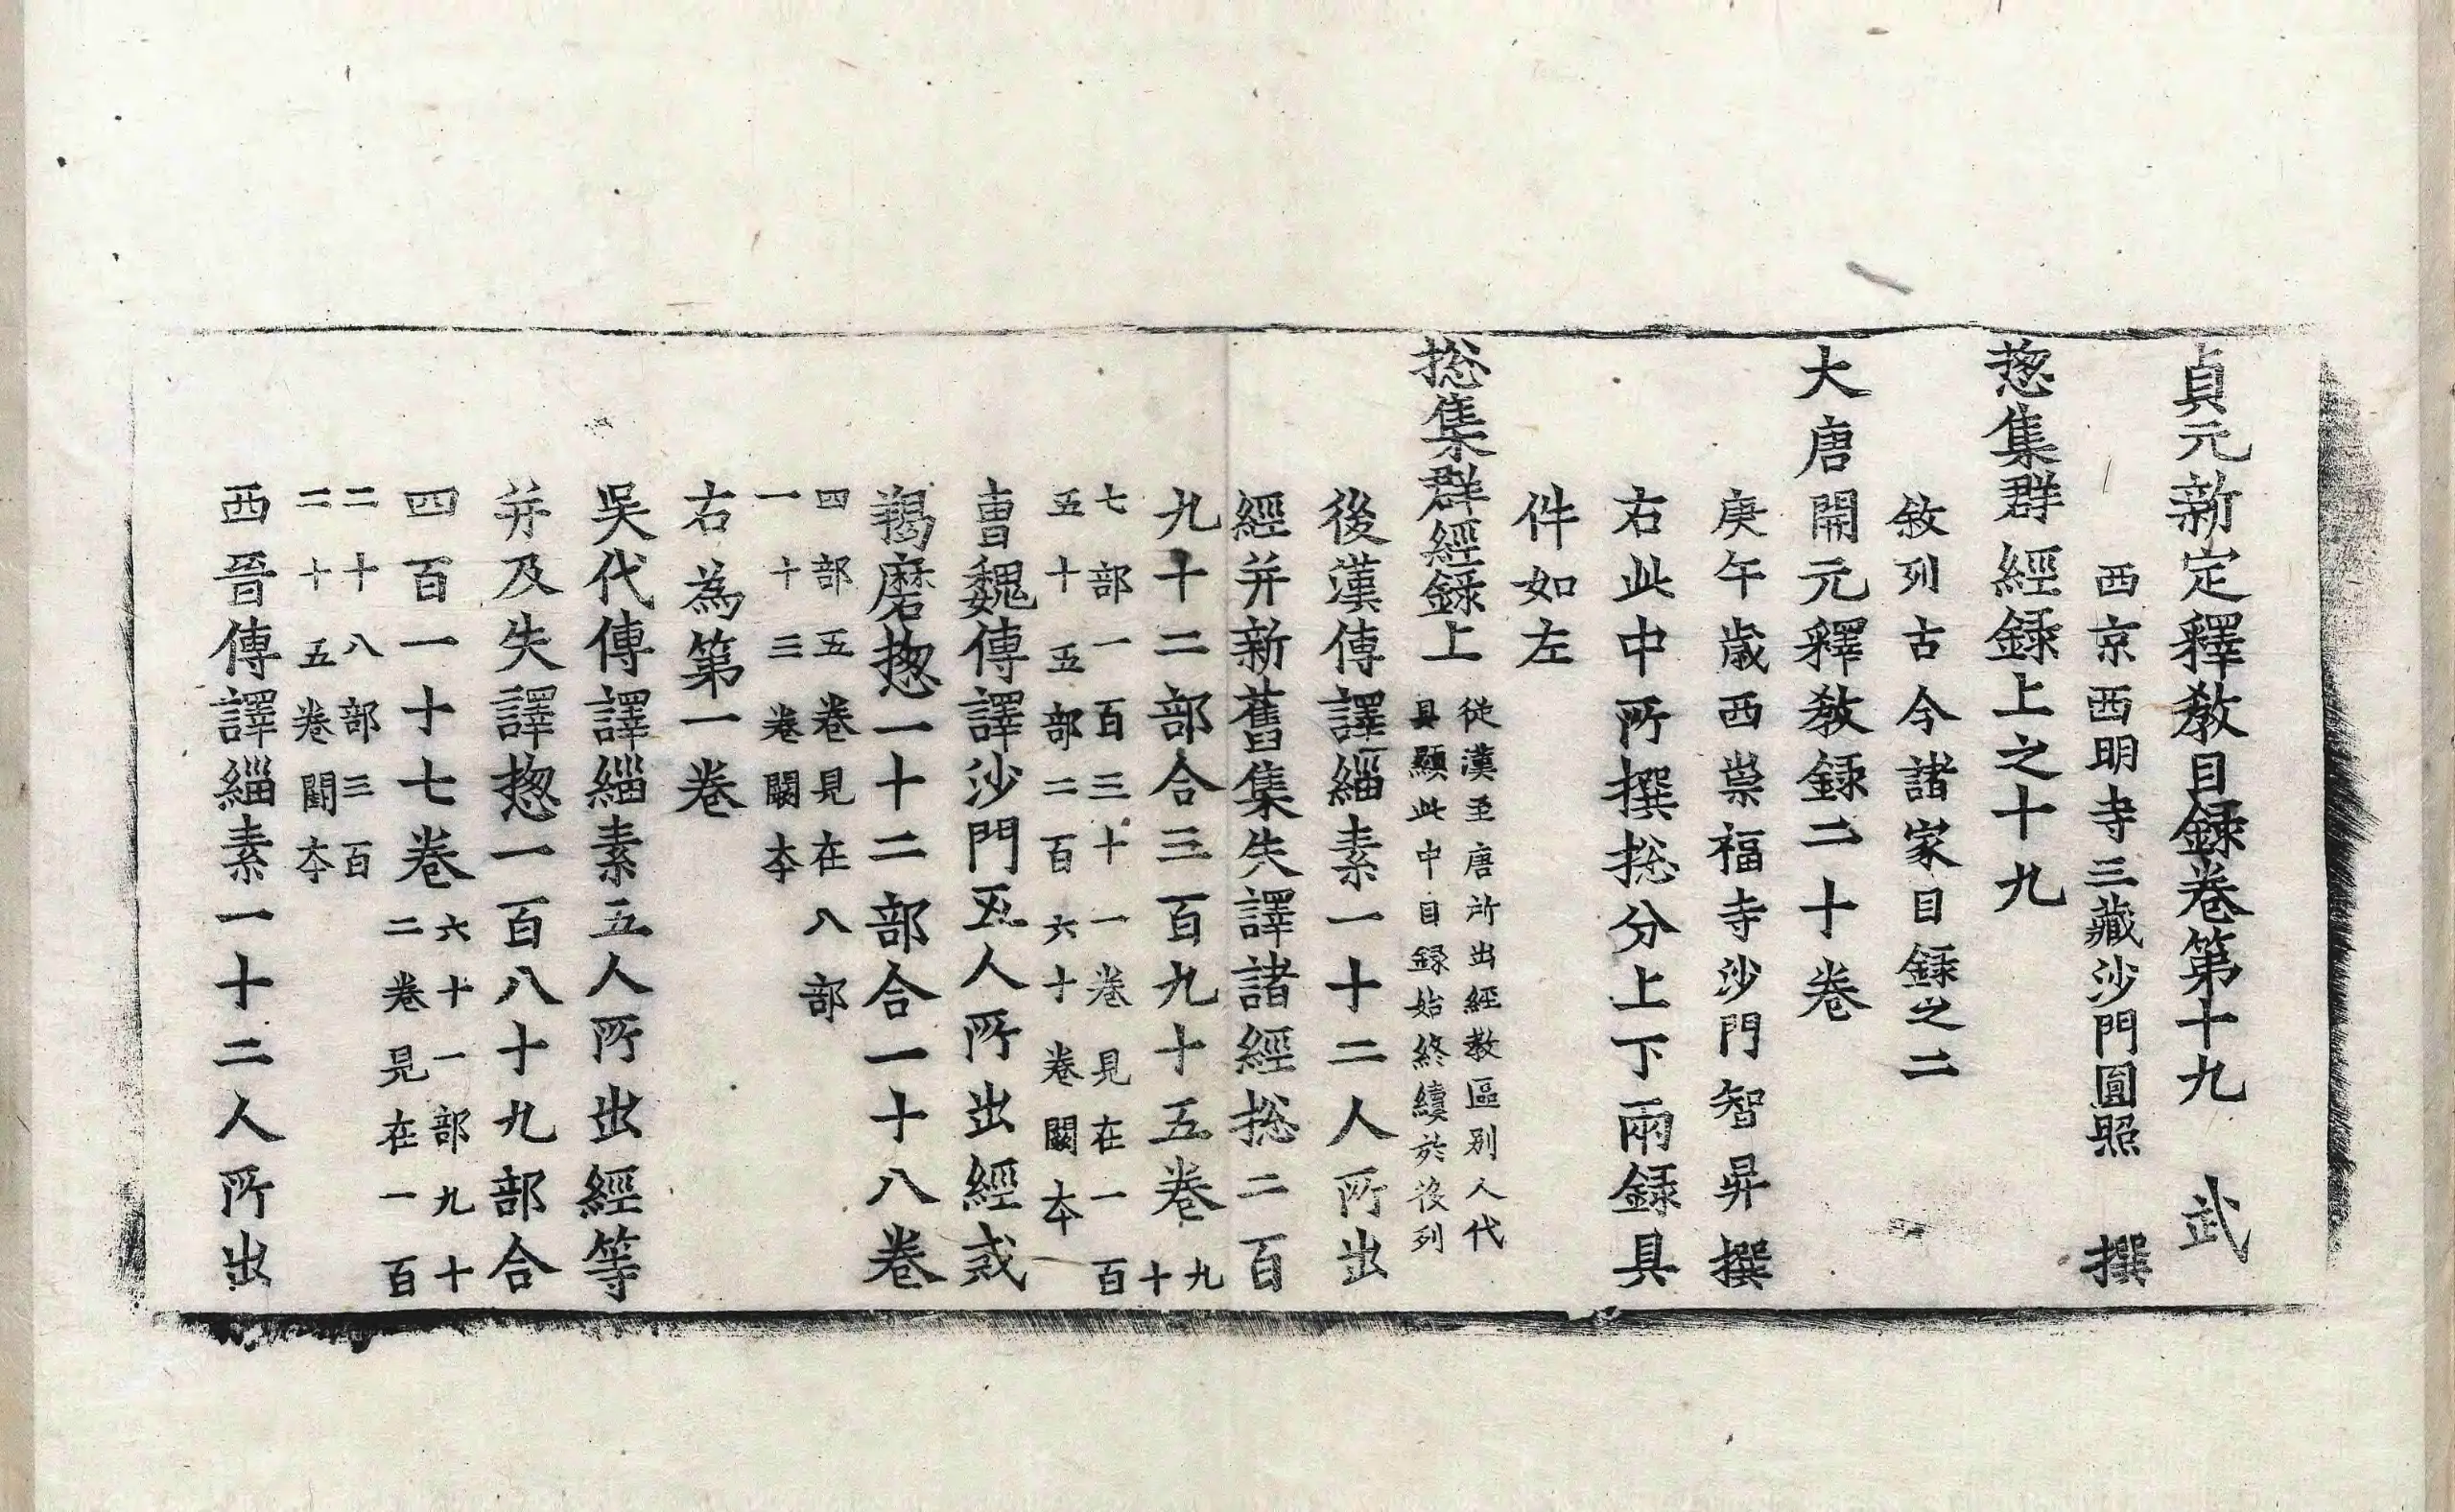 貞元新定釋教目録卷第十九 武
西京西明寺三藏沙門圓照 撰
揔集群經録上之十九
敘列古今諸家目録之二
大唐開元釋教録二十卷
庚午歲西崇福寺沙門智昇撰
右此中所撰捴分上下兩録具
件如左
捴集群經録上
從漢至唐所出經教區別人代
具顯此中目録始終續於後列
後漢傳譯緇素一十二人所出
經并新舊集失譯諸經捴二百
九十二部合三百九十五卷九十
七部一百三十一卷見在一百
五十五部二百六十卷闕本
曹魏傳譯沙門五人所出經戒
羯磨揔一十二部合一十八卷
四部五卷見在八部
一十三卷闕本
右為第一卷
吳代傳譯緇素五人所出經等
并及失譯揔一百八十九部合
四百一十七卷
六十一部九十
二卷見在一百
二十八部三百
二十五卷闕本
西晉傳譯緇素一十二人所出